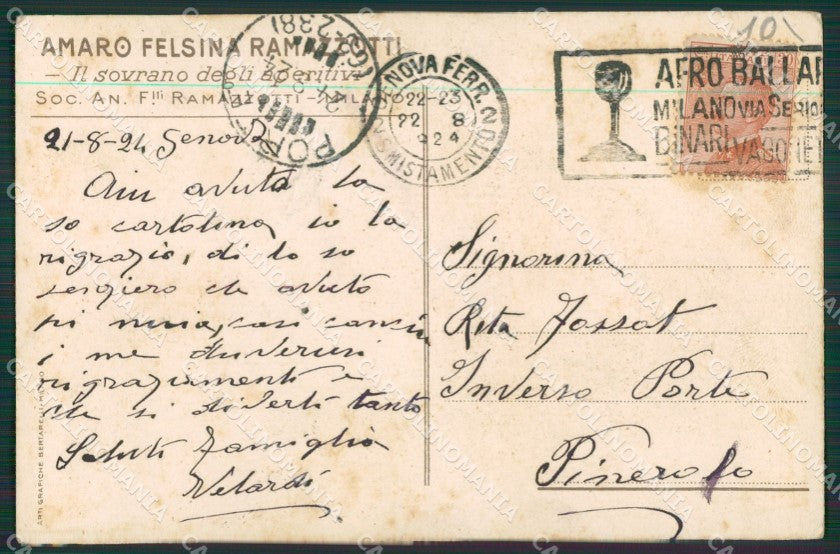 AMARO FELSINA RAMAZZOTTI
Il sovrano degli aperitivi
SOC. AN. Flli RAMAZZOTTI - MILANO
GENOVA FERR. 2
SMISTAMENTO
22-23
22 8
924
AFRO BALLAR
MILANO VIA SERIO
BINARI VAGO
10
21-8-24 Genova
avuta la
so cartolina io la
rigrazio, di lo so
che avuto
pi
i me
rigraziamenti e
che si diverti tanto
Saluti famiglia
Velardi
Signorina
Rita Jossat
Inverso Porte
Pinerolo
ARTI GRAFICHE BERTARELLI MILANO
CARTOLINOMANIA